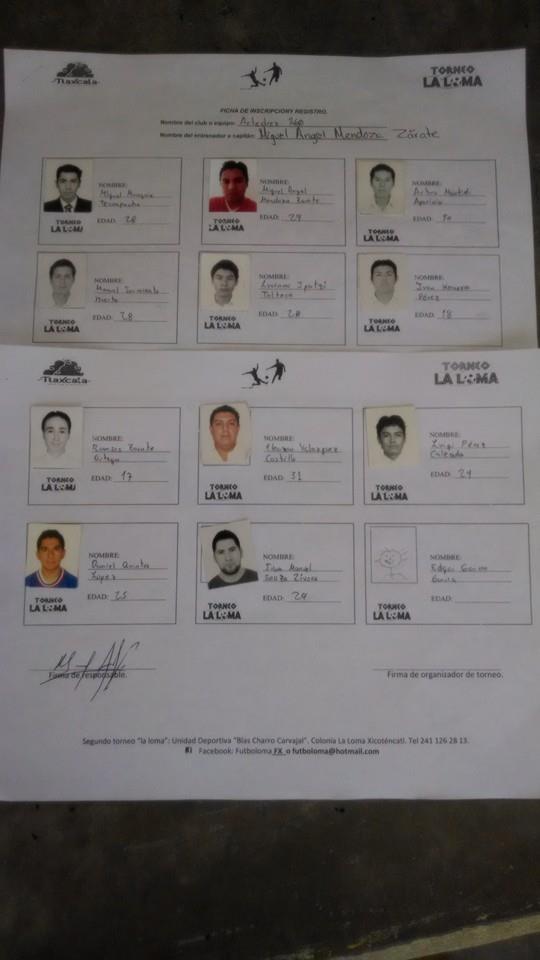 Tlaxcala
TORNEO
LA LOMA
FICHA DE INSCRIPCION Y REGISTRO.
Nombre del club o equipo:
Nombre del entrenador o capitán: Miguel Angel Mendoza Zárate
NOMBRE:
Miguel
EDAD: 28
TORNEO
LA LOMA
NOMBRE:
Miguel Angel
Mendoza Zarate
EDAD: 29
TORNEO
LA LOMA
NOMBRE:
Arturo
Aparicio
EDAD:
TORNEO
LA LOMA
NOMBRE:
Manuel Sarmiento
EDAD: 28
TORNEO
LA LOMA
NOMBRE:
EDAD: 28
TORNEO
LA LOMA
NOMBRE:
Ivan
Pérez
EDAD: 18
TORNEO
LA LOMA
Tlaxcala
TORNEO
LA LOMA
NOMBRE:
Zarate
Ortega
EDAD: 17
TORNEO
LA LOMA
NOMBRE:
Velazquez
Castillo
EDAD: 31
TORNEO
LA LOMA
NOMBRE:
Luigi Pérez
EDAD: 24
TORNEO
LA LOMA
NOMBRE:
Daniel
López
EDAD: 25
TORNEO
LA LOMA
NOMBRE:
Manuel
EDAD: 24
TORNEO
LA LOMA
NOMBRE:
Edgar
EDAD:
TORNEO
LA LOMA
Firma de responsable.
Firma de organizador de torneo.
Segundo torneo "la loma": Unidad Deportiva "Blas Charro Carvajal". Colonia La Loma Xicoténcatl. Tel 241 126 28 13.
Facebook: Futboloma FX o futboloma@hotmail.com